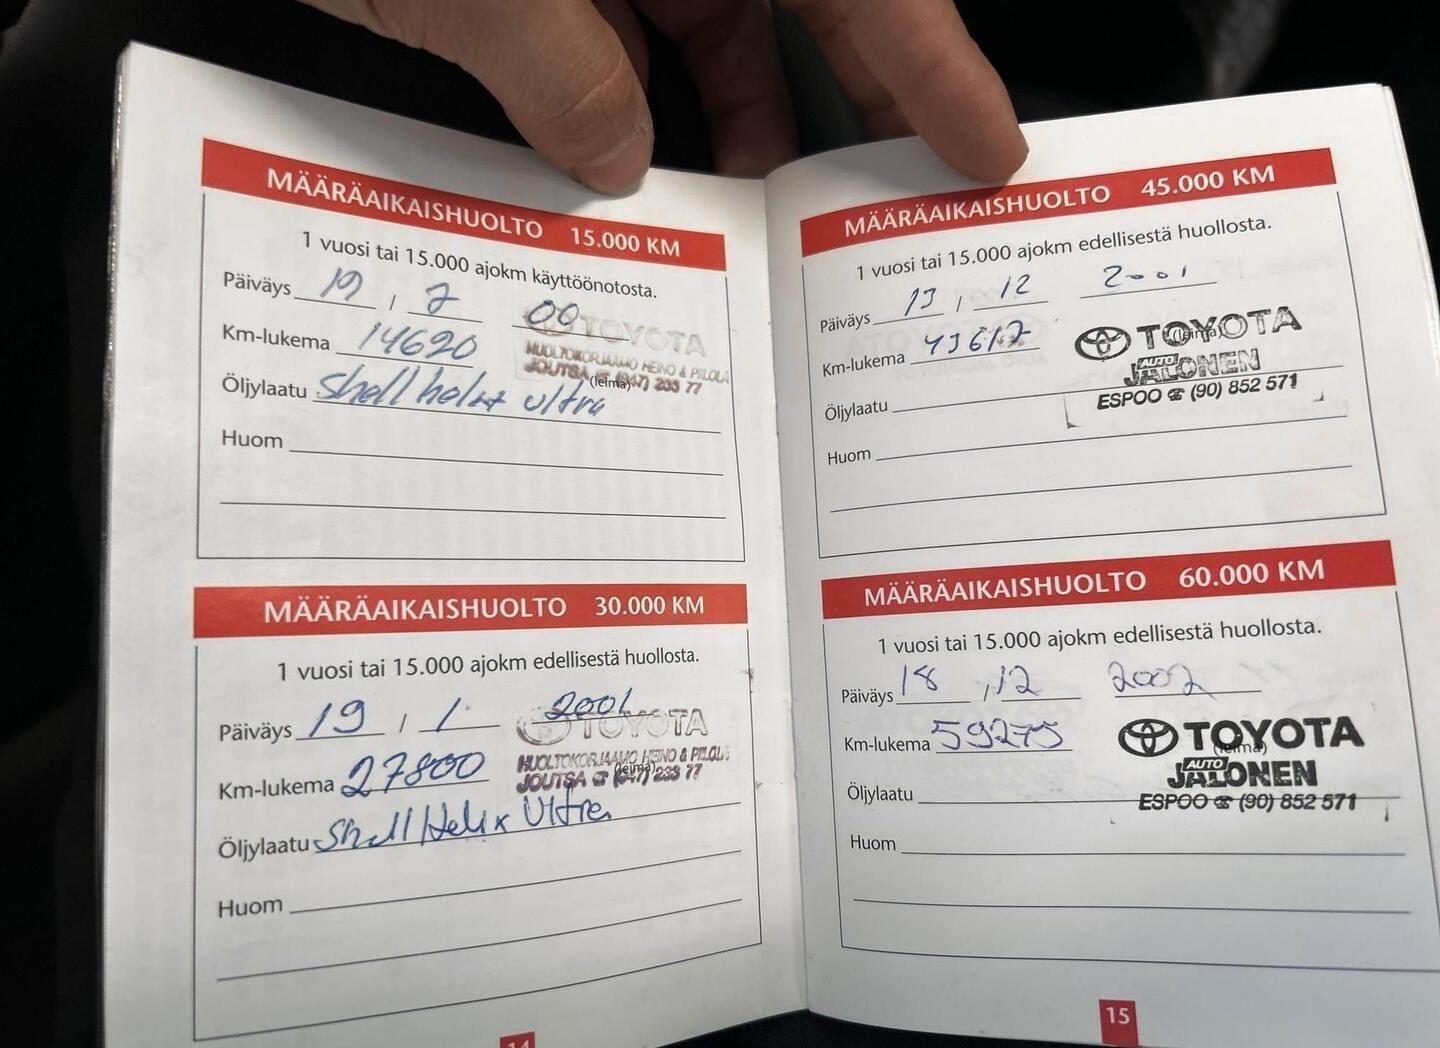 MÄÄRÄAIKAISHUOLTO 15.000 KM
1 vuosi tai 15.000 ajokm käyttöönotosta.
Päiväys 19 / 7 00
TOYOTA
Km-lukema 14620
HUOLTOKORJAAMO HEINO & PIILOLA
JOUTSA ☎ (947) 233 77
(leima)
Öljylaatu Shell helix ultra
Huom
MÄÄRÄAIKAISHUOLTO 30.000 KM
1 vuosi tai 15.000 ajokm edellisestä huollosta.
Päiväys 19 / 1. 2001
TOYOTA
Km-lukema 27800
HUOLTOKORJAAMO HEINO & PIILOLA
(leima)
JOUTSA ☎ (947) 233 77
Öljylaatu Shell Helix Ultra
Huom
14
MÄÄRÄAIKAISHUOLTO 45.000 KM
1 vuosi tai 15.000 ajokm edellisestä huollosta.
Päiväys 13 / 12 2001
Km-lukema 43617
TOYOTA
(leima)
AUTO
JALONEN
ESPOO ☎ (90) 852 571
Öljylaatu
Huom
MÄÄRÄAIKAISHUOLTO 60.000 KM
1 vuosi tai 15.000 ajokm edellisestä huollosta.
Päiväys 18 / 12 2002
Km-lukema 59275
TOYOTA
(leima)
AUTO
JALONEN
ESPOO ☎ (90) 852 571
Öljylaatu
Huom
15